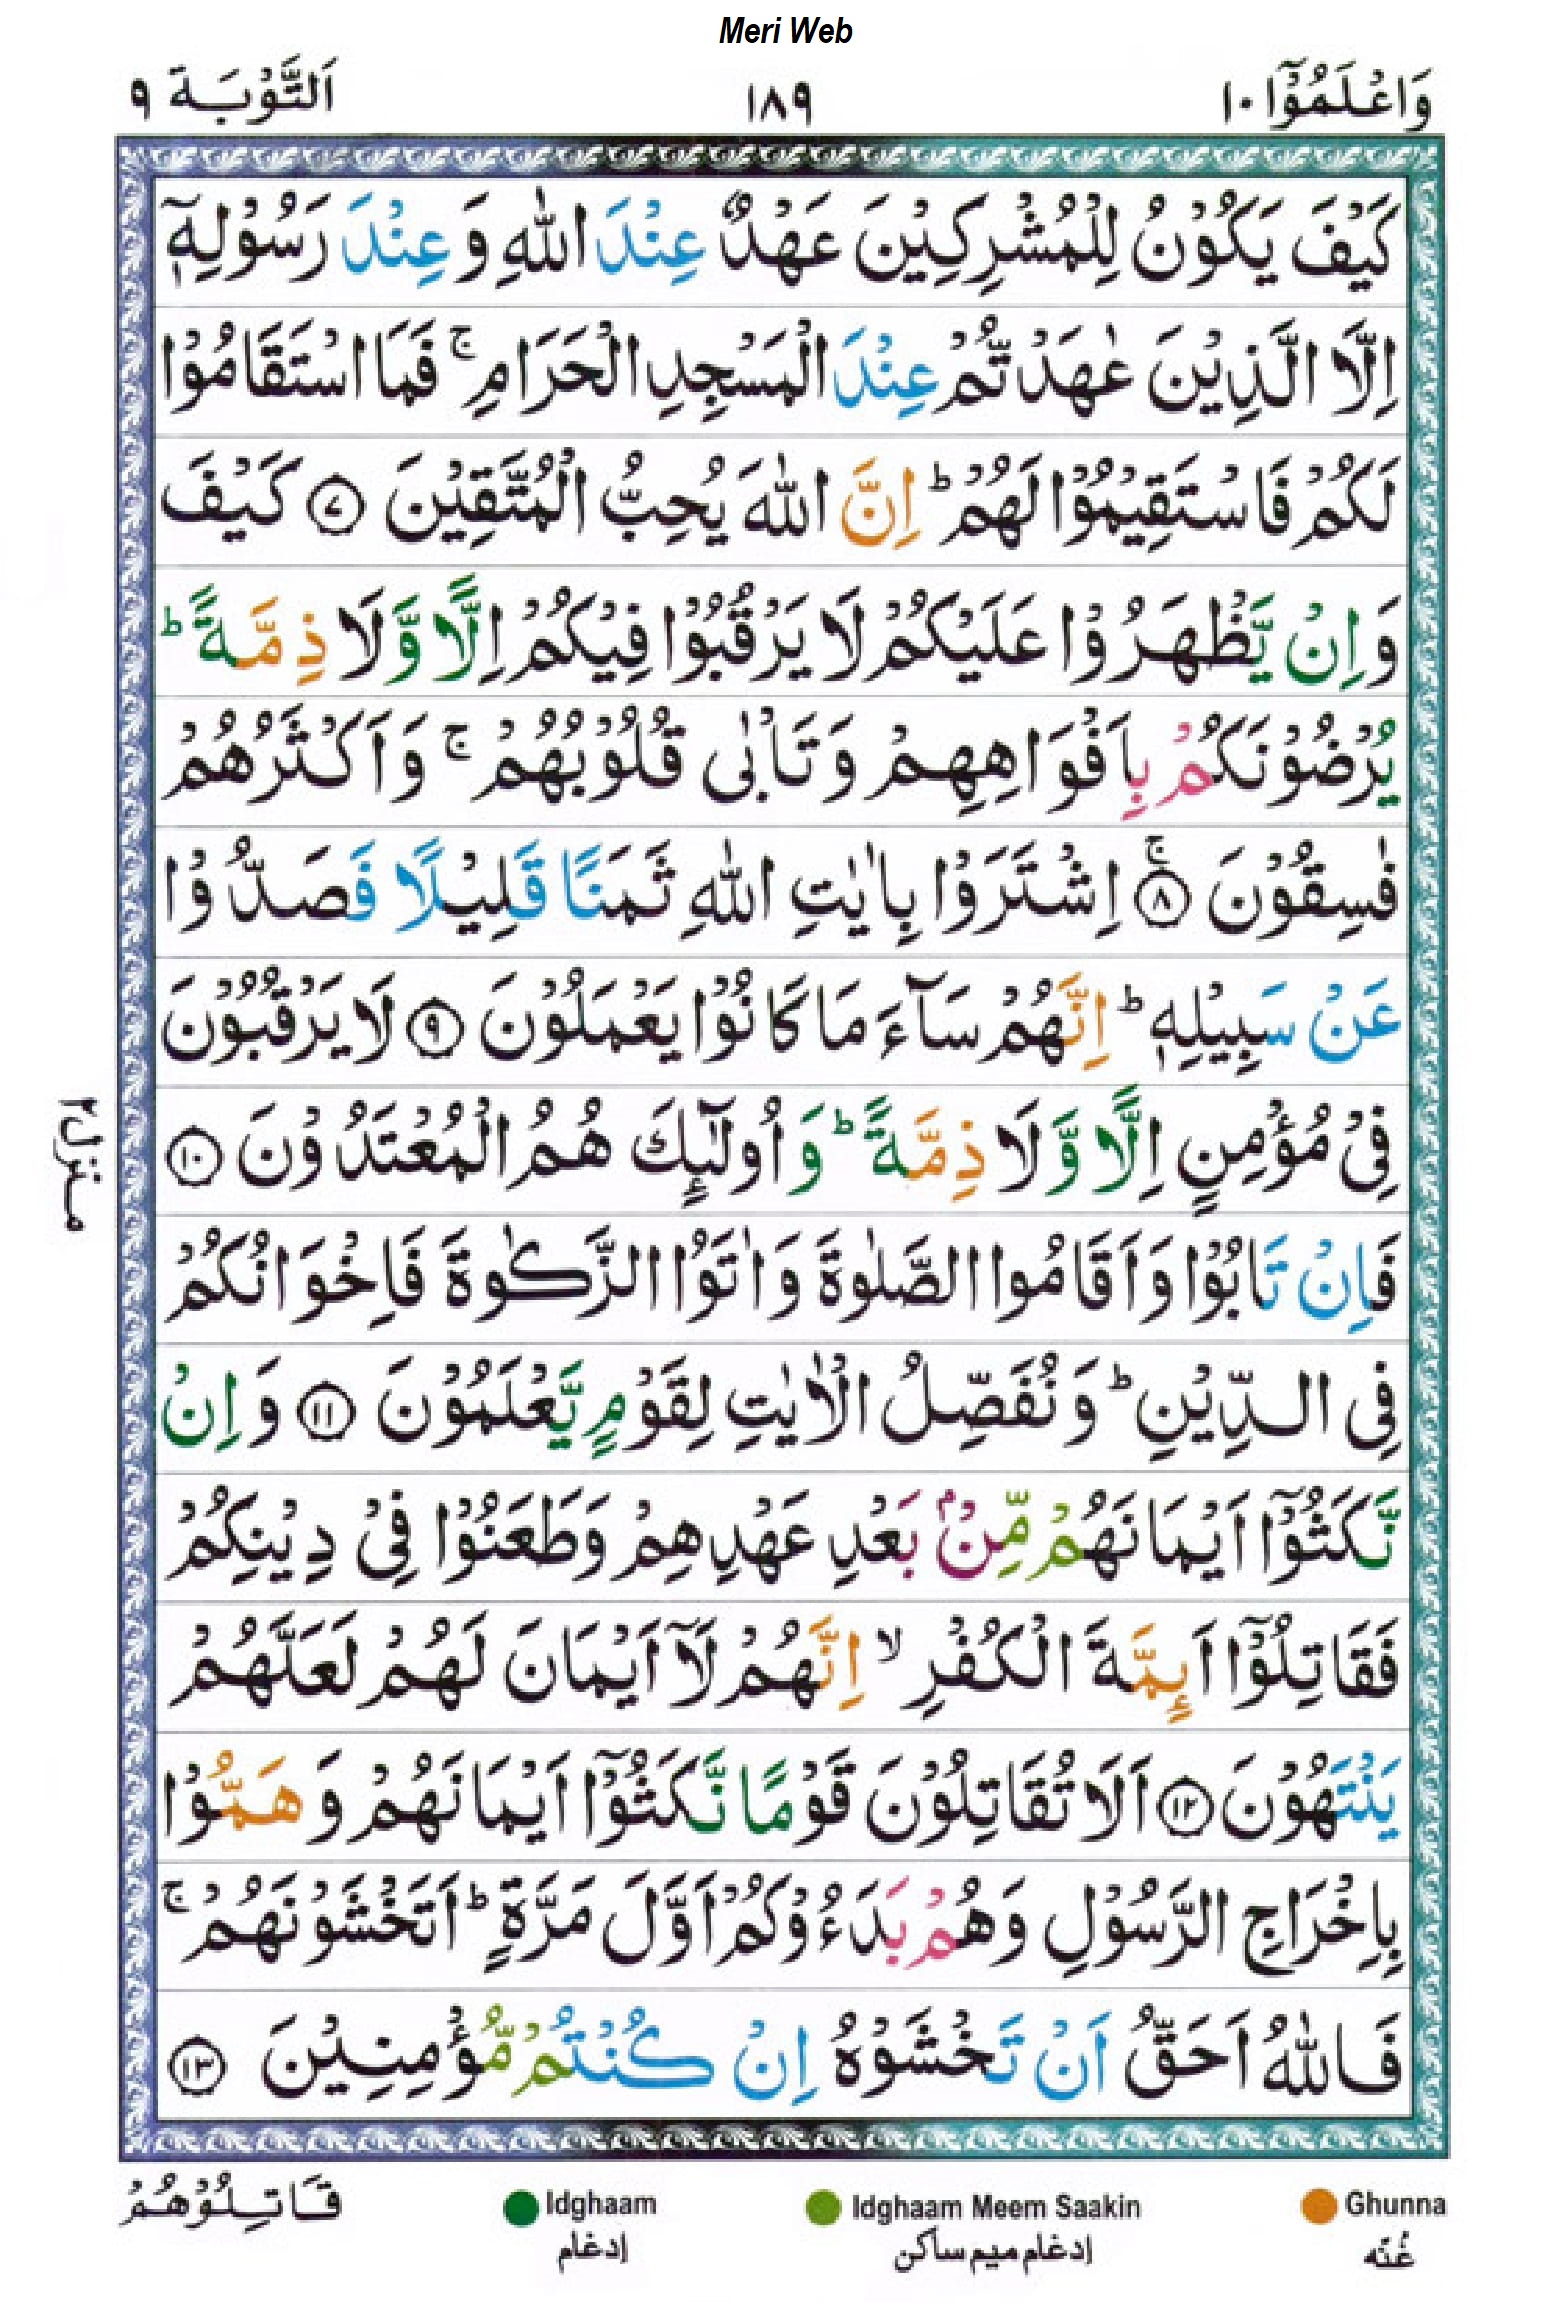 Meri Web
وَاعْلَمُوْۤا ١٠
١٨٩
اَلتَّوْبَة ٩
كَيْفَ يَكُوْنُ لِلْمُشْرِكِيْنَ عَهْدٌ عِنْدَ اللّٰهِ وَعِنْدَ رَسُوْلِهٖۤ
اِلَّا الَّذِيْنَ عٰهَدْتُّمْ عِنْدَ الْمَسْجِدِ الْحَرَامِ ۚ فَمَا اسْتَقَامُوْا
لَكُمْ فَاسْتَقِيْمُوْا لَهُمْ ؕ اِنَّ اللّٰهَ يُحِبُّ الْمُتَّقِيْنَ ٧ كَيْفَ
وَاِنْ يَّظْهَرُوْا عَلَيْكُمْ لَا يَرْقُبُوْا فِيْكُمْ اِلًّا وَّلَا ذِمَّةً ؕ
يُرْضُوْنَكُمْ بِاَفْوَاهِهِمْ وَتَاْبٰى قُلُوْبُهُمْ ۚ وَاَكْثَرُهُمْ
فٰسِقُوْنَ ۚ ٨ اِشْتَرَوْا بِاٰيٰتِ اللّٰهِ ثَمَنًا قَلِيْلًا فَصَدُّوْا
عَنْ سَبِيْلِهٖ ؕ اِنَّهُمْ سَآءَ مَا كَانُوْا يَعْمَلُوْنَ ٩ لَا يَرْقُبُوْنَ
فِيْ مُؤْمِنٍ اِلًّا وَّلَا ذِمَّةً ؕ وَاُولٰٓئِكَ هُمُ الْمُعْتَدُوْنَ ١٠
فَاِنْ تَابُوْا وَاَقَامُوا الصَّلٰوةَ وَاٰتَوُا الزَّكٰوةَ فَاِخْوَانُكُمْ
فِى الدِّيْنِ ؕ وَنُفَصِّلُ الْاٰيٰتِ لِقَوْمٍ يَّعْلَمُوْنَ ١١ وَاِنْ
نَّكَثُوْۤا اَيْمَانَهُمْ مِّنْۢ بَعْدِ عَهْدِهِمْ وَطَعَنُوْا فِيْ دِيْنِكُمْ
فَقَاتِلُوْۤا اَئِمَّةَ الْكُفْرِ ۙ اِنَّهُمْ لَاۤ اَيْمَانَ لَهُمْ لَعَلَّهُمْ
يَنْتَهُوْنَ ١٢ اَلَا تُقَاتِلُوْنَ قَوْمًا نَّكَثُوْۤا اَيْمَانَهُمْ وَهَمُّوْا
بِاِخْرَاجِ الرَّسُوْلِ وَهُمْ بَدَءُوْكُمْ اَوَّلَ مَرَّةٍ ؕ اَتَخْشَوْنَهُمْ ۚ
فَاللّٰهُ اَحَقُّ اَنْ تَخْشَوْهُ اِنْ كُنْتُمْ مُّؤْمِنِيْنَ ١٣
منزل ٢
قَاتِلُوْهُمْ
Idghaam
إدغام
Idghaam Meem Saakin
إدغام ميم ساكن
Ghunna
غُنّه